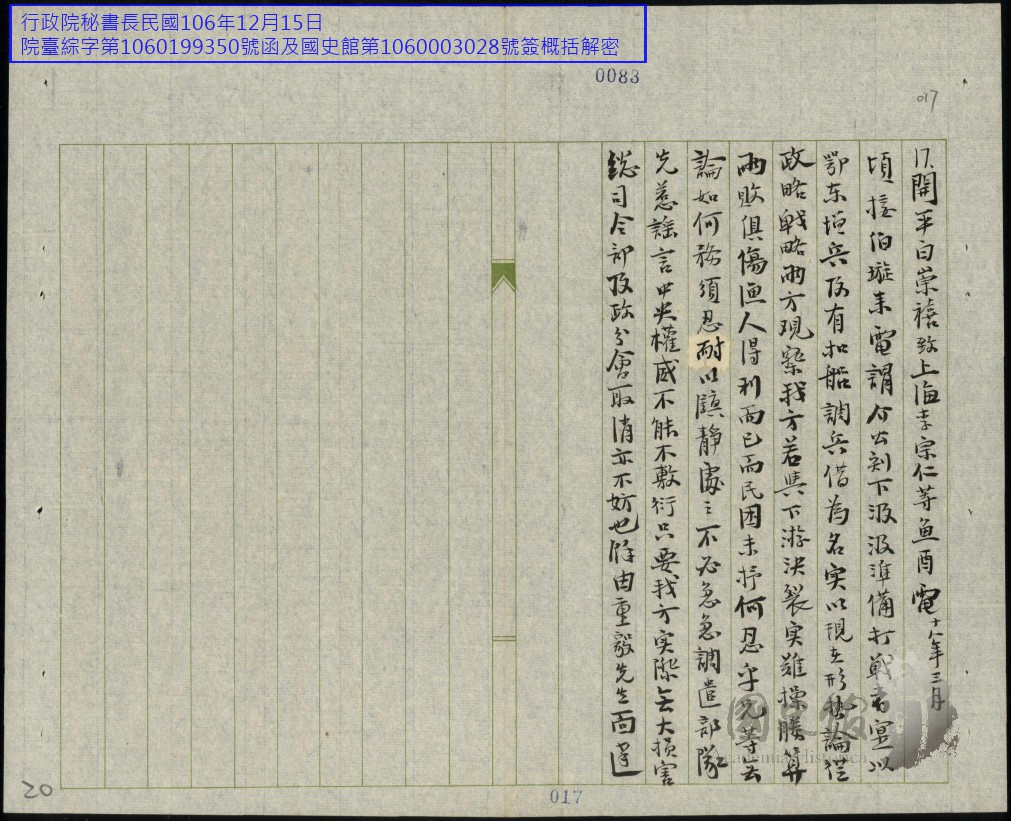 行政院秘書長民國106年12月15日
院臺綜字第1060199350號函及國史館第1060003028號簽概括解密
0083
017
17.開平白崇禧致上海李宗仁等魚酉電十八年三月
頃接伯璇來電謂介公刻下汲汲準備打戰者宣以
鄂東增兵及有扣船調兵借為名實以現在形勢論從
政略戰略兩方观察我方若與下游決裂实難操勝算
兩敗俱傷漁人得利而已而民困未抒何忍乎兄等去
論如何務須忍耐以鎮靜處之不必急急調遣部隊
先惹謠言中央權威不能不敷衍只要我方实際無大損害
總司令部及政分會取消亦不妨也餘由重毅先生面達
國史館
Academia Historica
20
017